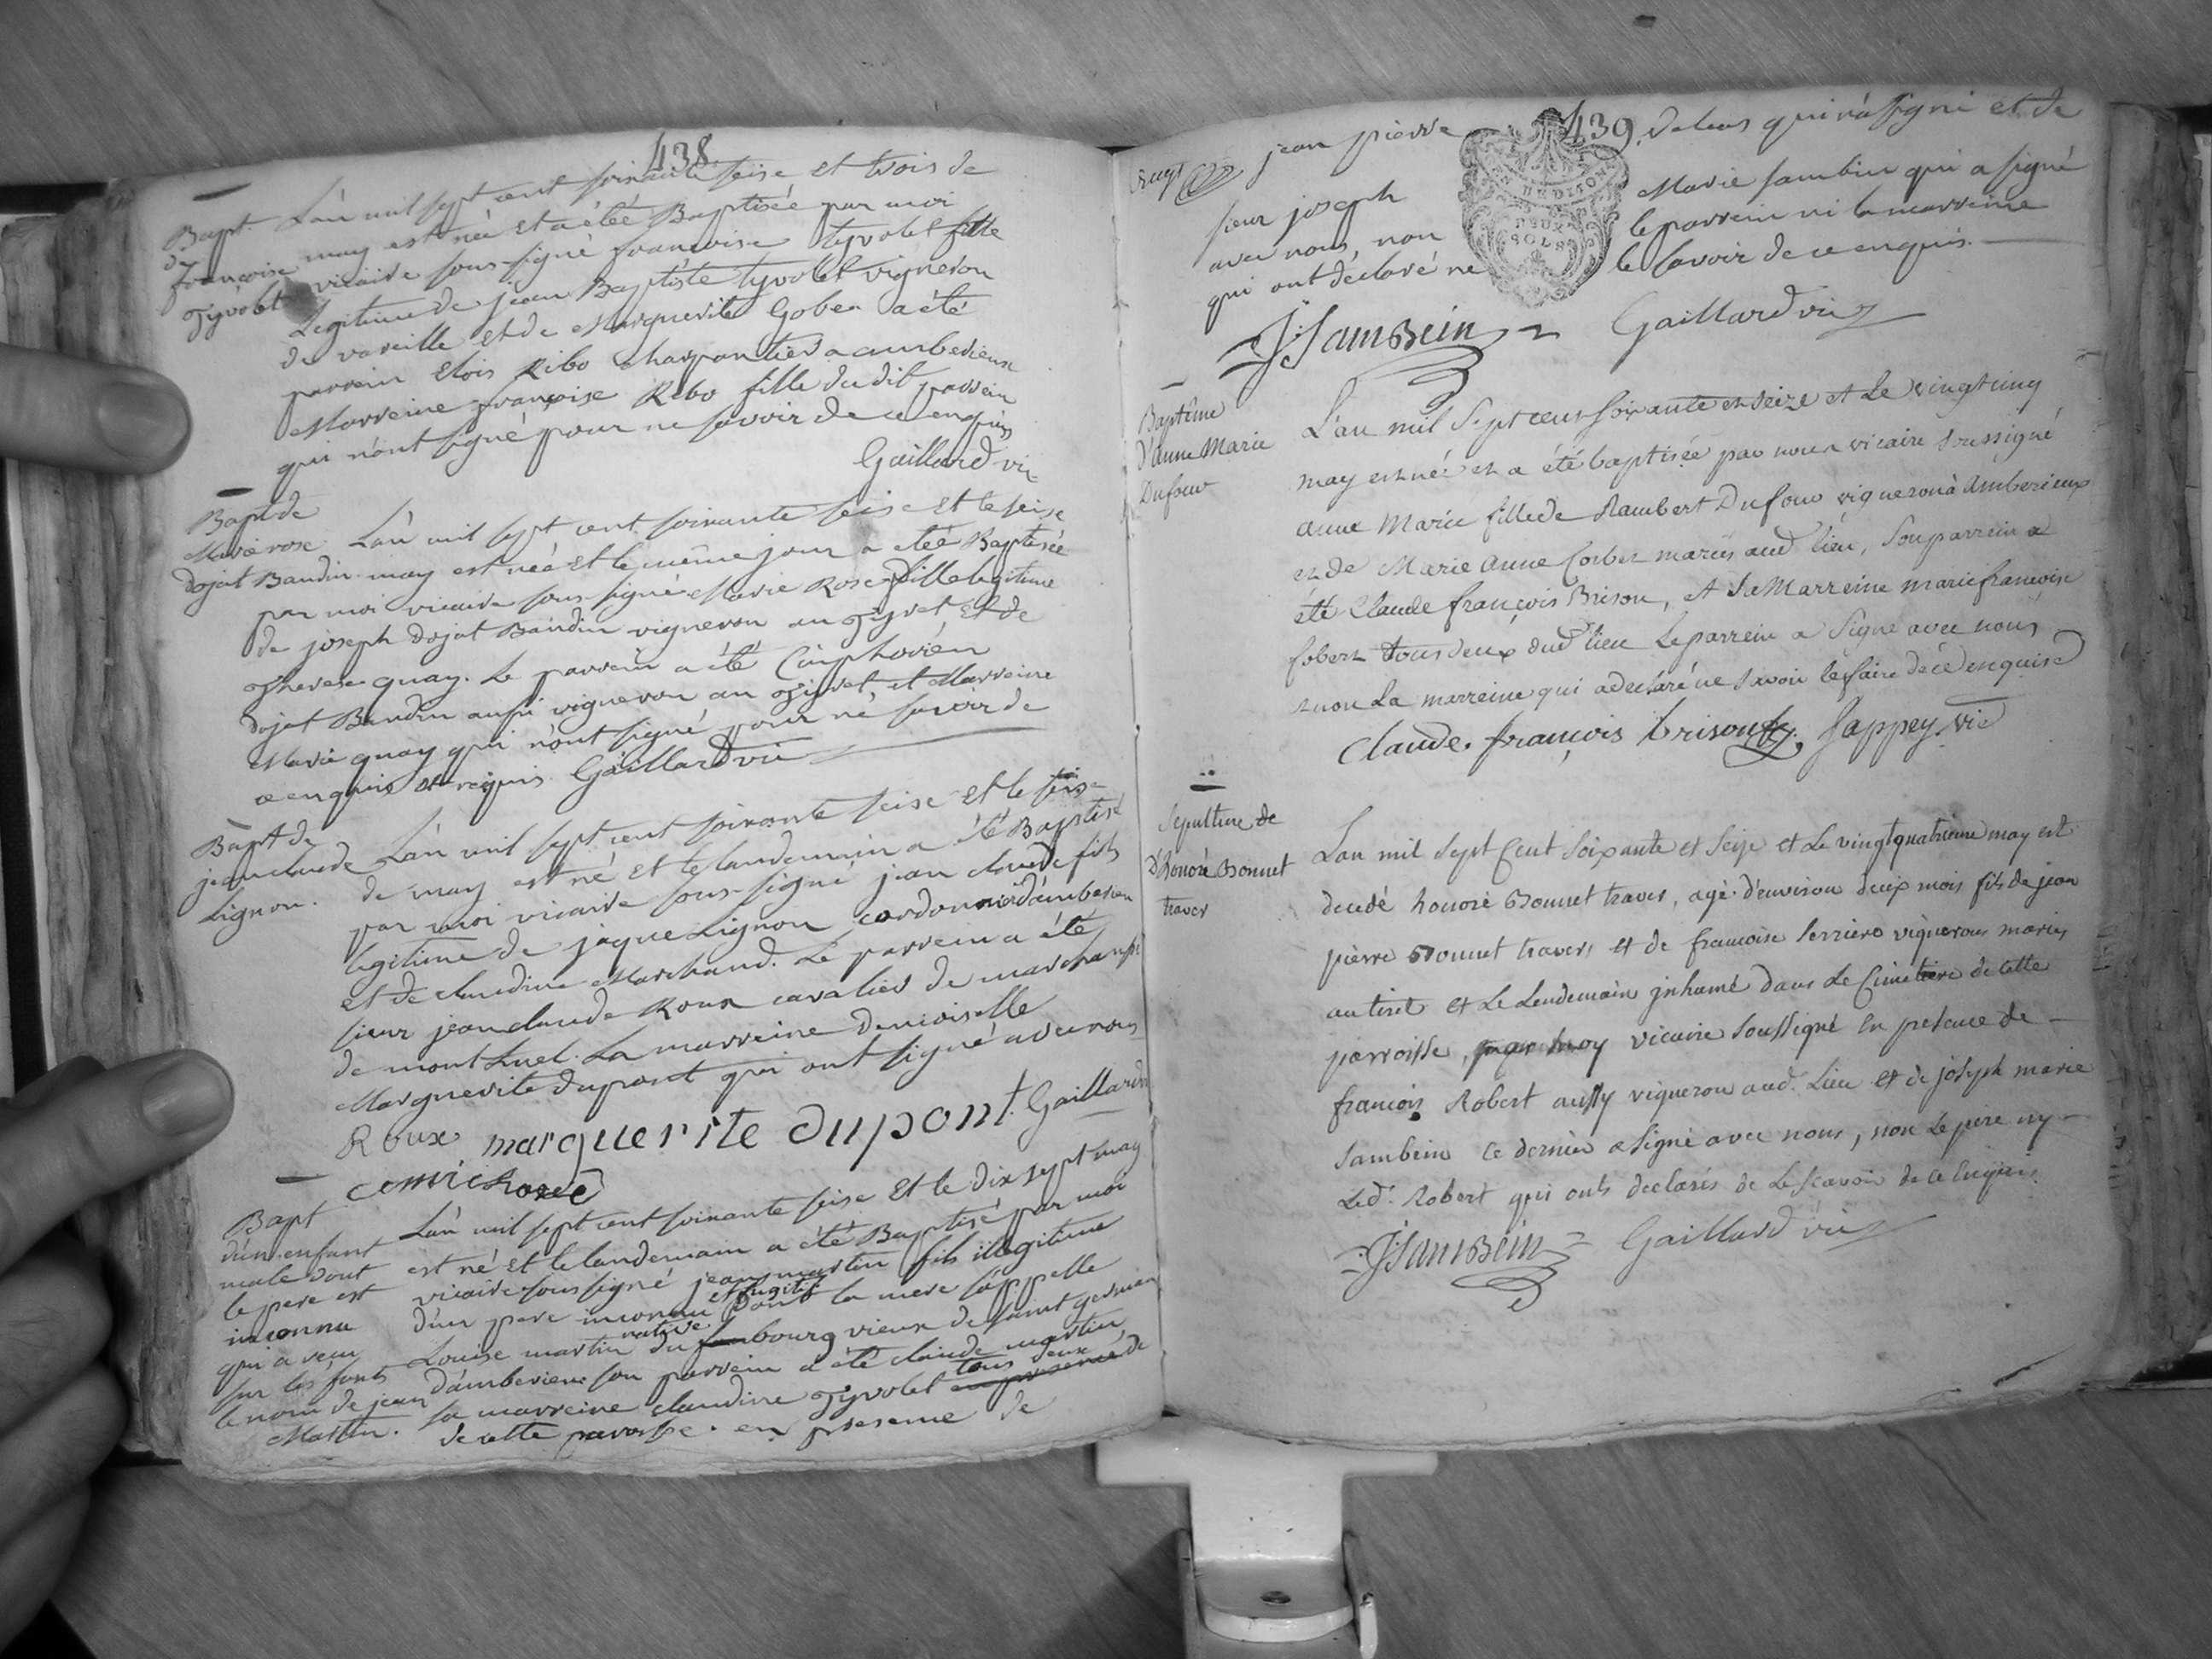 438
Bapt. L'an mil sept cent soixante seise et trois de
de may est née et a été Baptisée par moi
françoise vicaire sous-signé francoise tyvolet fille
Tyvolet Legitime de jean Baptiste tyvolet vigneron
de vareille et de Marguerite Gober a été
parrein Elois Ribo charpentier a amberieux
Marreine françoise Ribo fille du dit parrein
qui n'ont signé pour ne savoir de ce enquis
Gaillard vic
Bapt de
Marie rose L'an mil sept cent soixante seise et le seise
Dojat Baudin may est née et le même jour a été Baptisée
par moi vicaire sous-signé Marie Rose fille legitime
de joseph Dojat Baudin vigneron au Tyret, et de
Therese quay. Le parrein a été Cinphorien
Dojat Baudin aussi vigneron au Tiret, et Marreine
Marie quay qui n'ont signé pour ne savoir de
ce enquis et requis Gaillard vic
Bapt de
jean claude L'an mil sept cent soixante seise et le seise
Lignon. de may est né et le landemain a été Baptisé
par moi vicaire sous-signé jean claude fils
legitime de jaque Lignon cordonnié d'amberieu
et de claudine Marchand. Le parrein a été
sieur jean claude Roux cavalier de marechaussé
de montluel. La marreine demoiselle
Marguerite dupont qui ont signé avec nous
Roux marguerite dupont Gaillard
Bapt L'an mil sept cent soixante seise et le dix sept may
d'un enfant est né et le landemain a été Baptisé par moi
male dont vicaire sous signé jean martin fils illegitime
le pere est d'un pere inconnu et fugitif dont la mere s'appelle
inconnu Louise martin native du bourg vieux de saint germain
qui a reçu d'amberieux son parrein a été claude martin
sur les fonts sa marreine claudine Tyvolet tous deux en presence de
le nom de jean de cette paroisse. en presence de
Martin.
439
jean pierre deleas qui n'a signé et de
sieur joseph Marie sambin qui a signé
avec nous, non le parrein ni la marreine
qui ont déclaré ne le savoir de ce enquis.
DEUX
SOLS
JSambein Gaillard vic
Baptême
d'Anne Marie
Dufour
L'an mil Sept cent soixante et seize et Le vingt cinq
may est née et a été baptisée par nous vicaire soussigné
anne Marie fille de Rambert Dufour vigneron à Amberieux
et de Marie Anne Cobet mariés aud lieu, son parrein a
été Claude françois Brison, et Sa Marreine marie françoise
Cobert tous deux dud lieu Le parrein a Signé avec nous
et non La marreine qui a declaré ne savoir le faire de ce enquise
Claude. françois brison Sappey vic
Sepulture de
D'honoré Bonnet
traver
L'an mil sept Cent soixante et Seize et Le vingt quatrieme may est
decedé honoré Bonnet traver, agé d'environ deux mois fils de jean
pierre Bonnet travers et de francoise serriere vignerons mariés
au tiret et Le Lendemain inhumé dans Le Cimetiere de cette
parroisse, par moy vicaire soussigné en presence de
francois Robert aussy vigneron aud. Lieu et de joseph marie
Sambein ce dernier a signé avec nous, non Le pere ny
Led. Robert qui onts declarés de Le scavoir de ce Enquis.
JSambein Gaillard vic